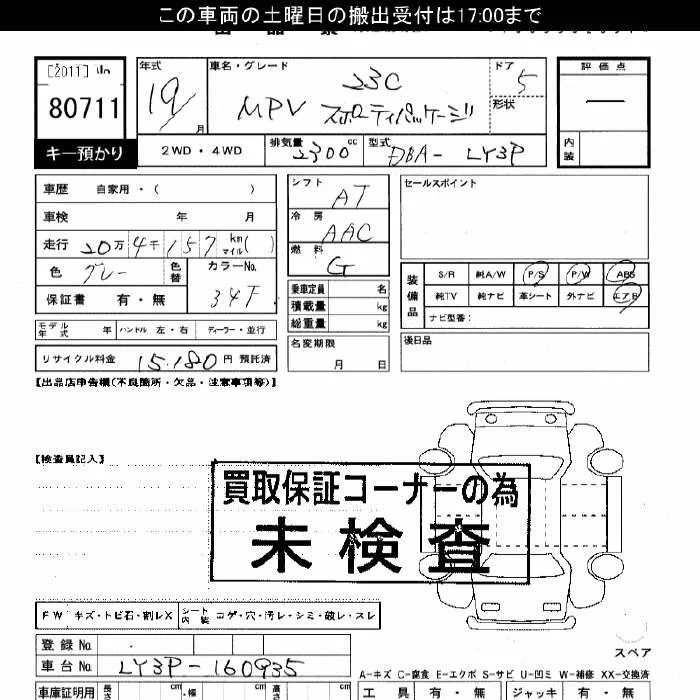 この車両の土曜日の搬出受付は17:00まで
[2011]
80711
キー預かり
年式
19
月
車名・グレード
23C
MPV スポーティパッケージ
ドア
5
形状
評価点
—
内装
2WD・4WD
排気量
2300
cc
型式
DBA- LY3P
車歴 自家用・( )
車検 年 月
走行 20万4千157 km マイル( )
色 グレー
色替
カラーNo.
34F
保証書 有・無
シフト
AT
冷房
AAC
燃料
G
乗車定員 名
積載量 kg
総重量 kg
名変期限
月 日
セールスポイント
装備品
S/R 純A/W P/S P/W ABS
純TV 純ナビ 革シート 外ナビ エアB
ナビ型番:
後日品
モデル年式 年 ハンドル 左・右 ディーラー・並行
リサイクル料金 15,180 円 預託済
【出品店申告欄(不良箇所・欠品・注意事項等)】
【検査員記入】
買取保証コーナーの為
未検査
FW キズ・トビ石・割レX シート内装 コゲ・穴・汚レ・シミ・破レ・スレ
登録No.
車台No. LY3P-160935
スペア
A-キズ C-腐食 E-エクボ S-サビ U-凹ミ W-補修 XX-交換済
車庫証明用 長さ cm 幅 cm 高さ cm
工具 有・無 ジャッキ 有・無